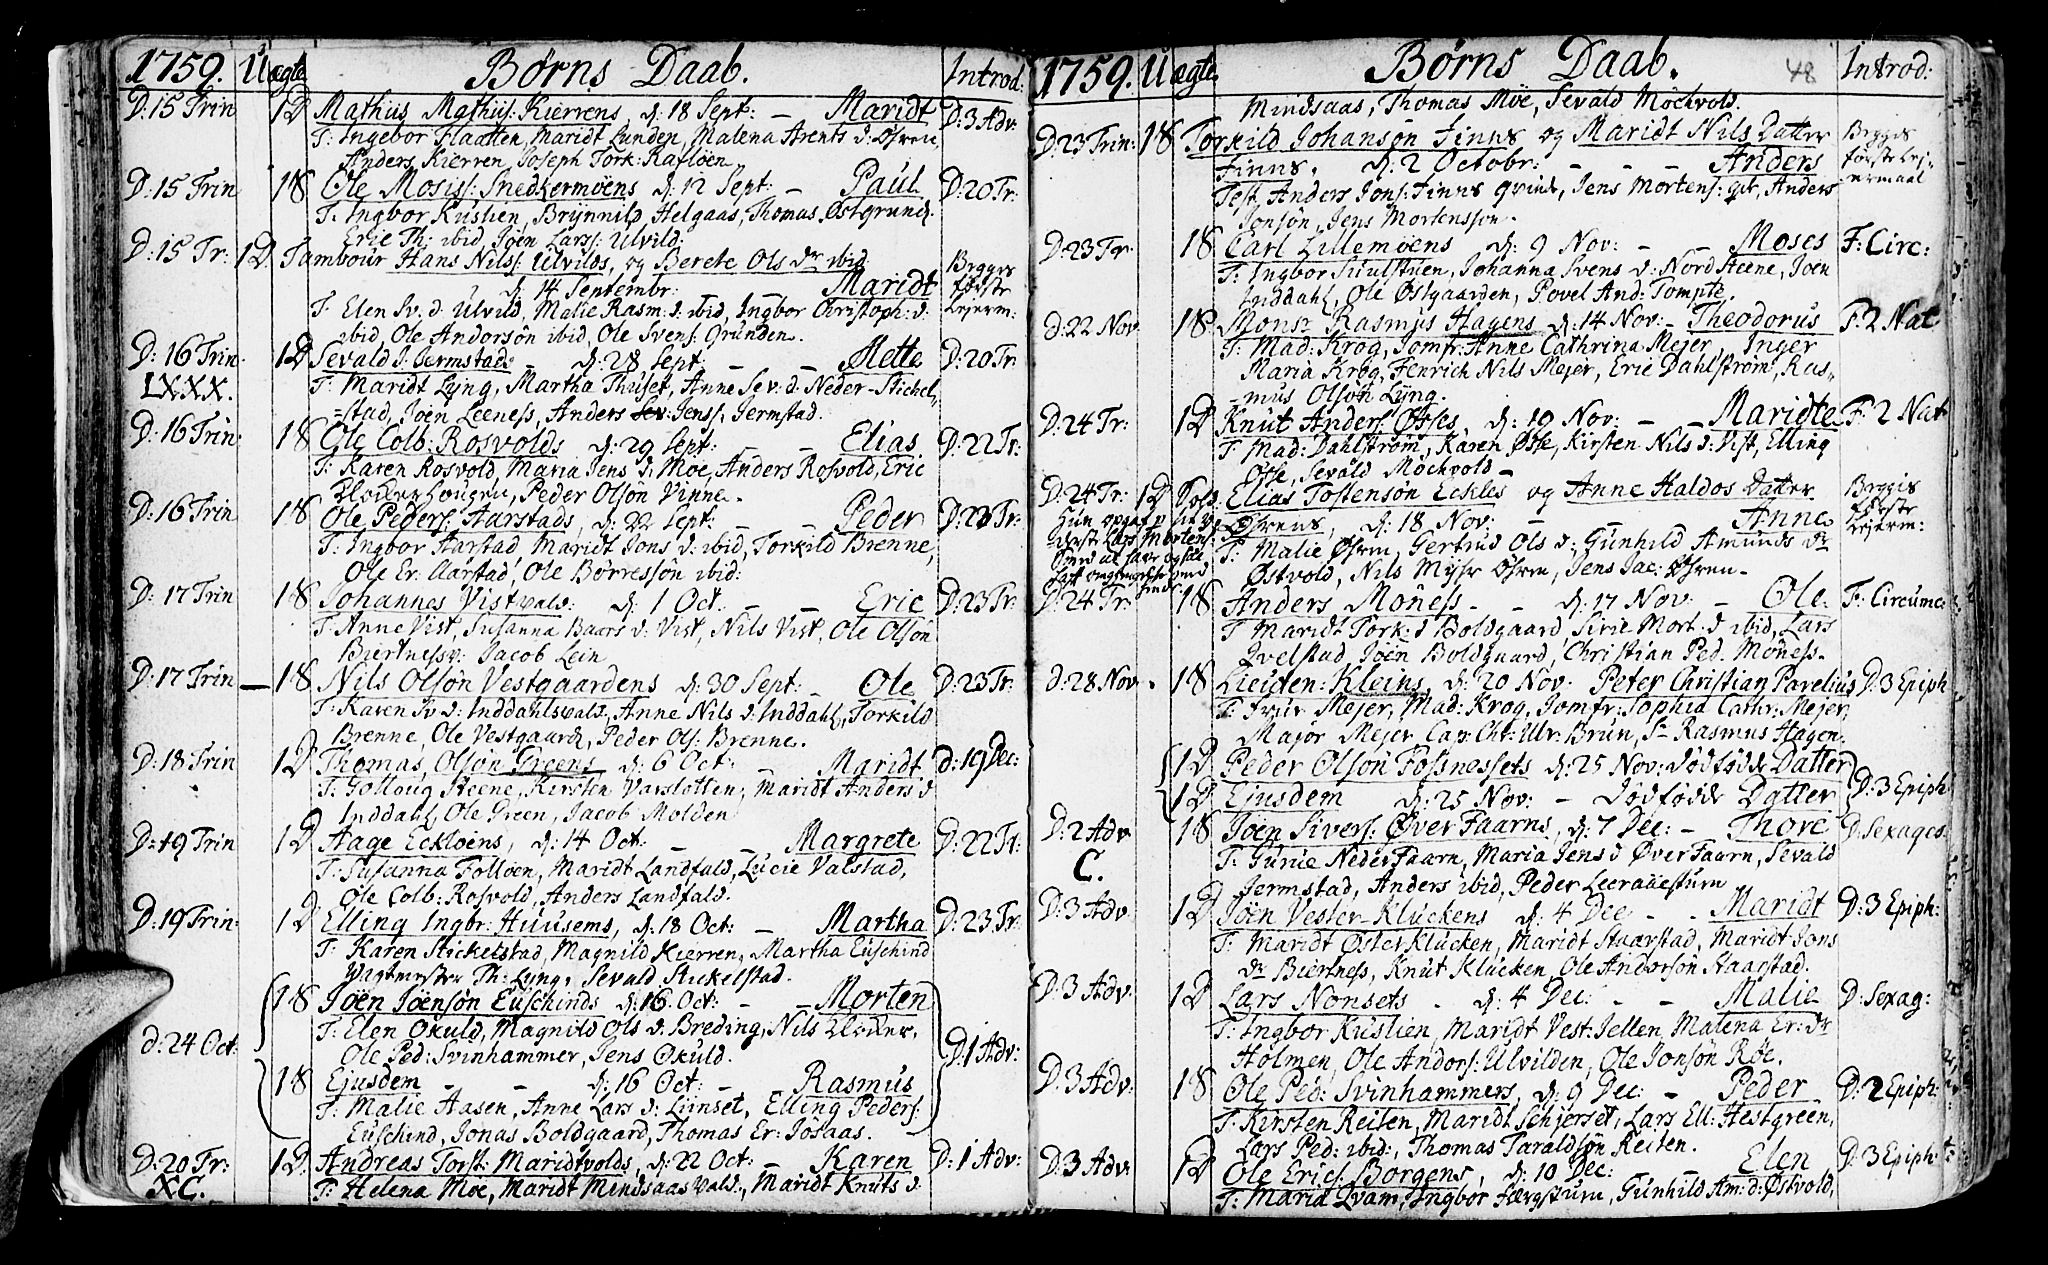 1759. Uægte Børns Daab. Introd:
D: 15 Trin 1 D Mathus Mathus: Kierrens, d: 18 Sept: – Maridt D: 3 Adv:
T: Ingebor Flaatten, Maridt Lunden, Malena Arents d: Øhren
Anders Kierren Joseph Tork: Rafløen
D: 15 Trin 1 S Ole Mosis: Snedkermöens d: 12 Sept: – Paul D: 20 Tr:
T: Ingbor Kuslien, Brynnild Helgaas, Thomas Østgrund.
Eric Th: ibid Joen Larss: Ulvild.
D: 15 Tr: 1 D. Tambour Hans Nilss: Ulvilds, og Berete Ols dr ibid Begges
d: 14 Septembr: Maridt første
T: Elen Sv: d: Ulvild, Malie Rasm: d: ibid, Ingbor Christoph: d: Lejerm:
ibid Ole Andersön ibid, Ole Svens: Grunden.
D: 16 Trin 1 D Sevald J: Jermstads – d: 28 Sept: – Mette D: 20 Tr
LXXX. T: Maridt Lyng, Martha Thuset, Anne Sev: d: Neder-Stichel,,
=stad, Joen Leeness, Anders Jens: Jermstad.
D: 16 Trin: 1 S Ole Colb: Rosvolds d: 29 Sept: – Elias D: 22 Tr:
T: Karen Rosvold, Maria Jens d: Moe, Anders Rosvold, Eric
Peder Olsön Vinne.
D: 16 Trin 1 S Ole Peders: Aarstads, d: 22 Sept: – Peder D: 23 Tr:
T: Ingbor Aarstad Maridt Jons d: ibid, Torkild Brenne,
Ole Er: Aarstad, Ole Børresson ibid:
D: 17 Trin 1 S Johannes Vistvald: d: 1 Oct: – Eric D: 23 Tr:
T: Anne Vist, Susanna Baars d: Vist, Nils Vist, Ole Olsön
Biertnessv: Jacob Lein
D: 17 Trin – 1 S Nils Olsön Vestgaardens d: 30 Sept: – Ole D: 23 Tr:
T: Karen Sv: d: Inddahlsvald, Anne Nils d: Inddahl, Torkild
Brenne, Ole Vestgaard, Peder Ols: Brenne.
D: 18 Trin 1 D Thomas Olsön Greens d: 6 Oct: – Maridt d: 19 Dec:
T: Golloug Steene, Kirsten Varslotten, Maridt Anders d
Inddahl, Ole Green, Jacob Molden
D: 19 Trin 1 D Aage Eckloens, d: 14 Oct: – Margrete D: 22 Tr:
T: Susanna Folloen, Maridt Landfald, Lucie Valstad,
Ole Colb: Rosvold, Anders Landfald.
D: 19 Trin: 1 D Elling Ingbr: Huusems, d: 18 Oct: – Martha D: 23 Tr:
T: Karen Stickelstad, Magnild Kierren, Martha Euschind
Vagtmester Th: Lyng, Sevald Stickelstad.
1 S Joen Joensön Euschinds d: 16. Oct: – Morten
T: Elen Okuld, Magnild Ols d: Breding, Nils
d: 24 Oct: Ole Ped: Svinhammer, Jens Okuld. D: 1 Adv:
1 S Ejusdem – – d: 16 Oct: – Rasmus
T: Malie Aasen, Anne Lars d: Lunset, Elling Peders:
Euschind, Jonas Boldgaard, Thomas Er: Josaas.
D: 20 Tr: 1 D. Andreas Torst: Maridtvolds, d: 22 Oct: – Karen D: 1 Adv:
XC. T: Helena Moe, Maridt Mindsaasvald, Maridt Knuts d:
1759. Uægte Børns Daab. 48 Introd:
Mindsaas, Thomas Moe, Sevald Mochvold.
D: 23 Trin: 1 S Torkild Johansön Finns og Maridt Nils Datter Begges
Finns, d: 2 Octobr: – – – Anders første Lej-
Test. Anders Jons: Finns Jens Mortens: Anders ermaal
Jonsön, Jens Mortensson.
D: 23 Tr 1 S Carl Lillemöens d: 9 Nov: – – Moses F: Circ:
T: Ingbor Suulstuen, Johanna Svens d: Nord Steene, Joen
Inddahl, Ole Østgaarden, Povel And: Tompte.
d: 22 Nov 1 S Monsr Rasmus Hagens d: 14 Nov: – Theodorus F: 2 Nat
T: Mad: Krog, Jomfr: Anne Cathrina Mejer, Inger
Maria Krog, Henrich Nils Mejer, Eric Dahlström, Ras,,
=mus Olsön Lyng.
D: 24 Tr: 1 D Knut Anders: Østes, d: 19 Nov: – – Maridte F: 2 Nat
T: Mad: Dahlström, Karen Öste, Kirsten Nils d: Vist, Elling
Öste, Sevald Mochvold –
D: 24 Tr: 1 D Sold. Elias Tostensön Eckles og Anne Haldos Datter Begges
Hun opgaf Øhrens, d: 18 Nov: Anne første
Lars Mortens: T: Malie Øhren, Gertrud Ols d: Gunhild Amunds dr Lejerm:
Østvold, Nils Øhren, Jens Jac: Øhren –
D: 24 Tr: 1 S Anders Moness – – d: 17 Nov: – Ole F: Circumc:
T: Maridt Tork: d Boldgaard, Sirie Mort: d ibid, Lars
Qvelstad, Joen Boldgaard, Christian Ped: Moness.
d: 28 Nov. 1 S Lieuten: Kleins, d: 20 Nov: Peter Christian Parelius D: 3 Epiph
T: Frue Mejer, Mad: Krog, Jomfr: Sophia Cathr: Mejer,
Major Mejer Cap: Cht: Ulr: Brun, Sr Rasmus Hagen.
1 D Peder Olsön Fossnessets d: 25 Nov: Dödfödde Datter
1 D Ejusdem d: 25 Nov: – Dödfödde Datter D: 3 Epiph
D: 2 Adv 1 S Joen Sivers: Øver Faarns, d: 7 Dec: – Thore D: Sexages:
C. T: Gurie Neder Faarn, Maria Jens d Øver Faarn, Sevald
Jermstad, Anders ibid, Peder Leeraaesturn
D: 3 Adv: 1 D Joen Vester-Kluckens d: 4 Dec – – Maridt D: 3 Epiph:
T: Maridt Øster Klucken, Maridt Staarstad, Maridt Jons
dr Biertness, Knut Klucken, Ole Andersön Staarstad.
D: 3 Adv: 1 D Lars Nonsets – d: 4 Dec: – – Malie D: Sexag:
T: Ingbor Kuslien, Maridt Vest: Jellen, Malena Er: dr
Holmen, Ole Anders: Ulvilden, Ole Jonsön Røe.
D: 3 Adv: 1 S Ole Ped: Svinhammers, d: 9 Dec: – Peder D: 2 Epiph:
T: Kirsten Reiten, Maridt Schjerset, Lars Ell: Hestgreen,
Lars Ped: ibid:, Thomas Taraldsön Reiten.
D: 3 Adv: 1 D Ole Erics: Borgens, d: 10 Dec: Elen D: 3 Epiph:
T: Maria Qvam, Ingbor Færgsturn, Gunhild Am: d: Østvold,